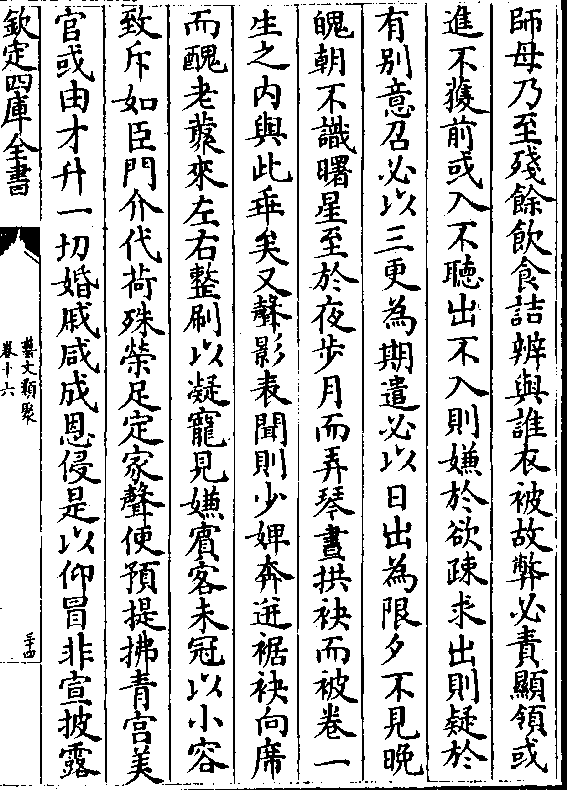 師母乃至殘餘飲食詰辨與誰衣被故弊必責顯領或
進不獲前或入不聽出不入則嫌於欲疎求出則疑於
有别意召必以三更為期遣必以日出為限夕不見晚
魄朝不識曙星至於夜步月而弄琴晝拱袂而被卷一
生之内與此乖矣又聲影表聞則少婢奔迸裾袂向席
而醜老藂來左右整刷以凝寵見嫌賓客未冠以小容
致斥如臣門介代荷殊榮足定家聲便預提拂青宫美
官或由才升一切婚戚咸成恩侵是以仰冒非宣披露
欽定四庫全書
藝文類聚
卷十六
二十四